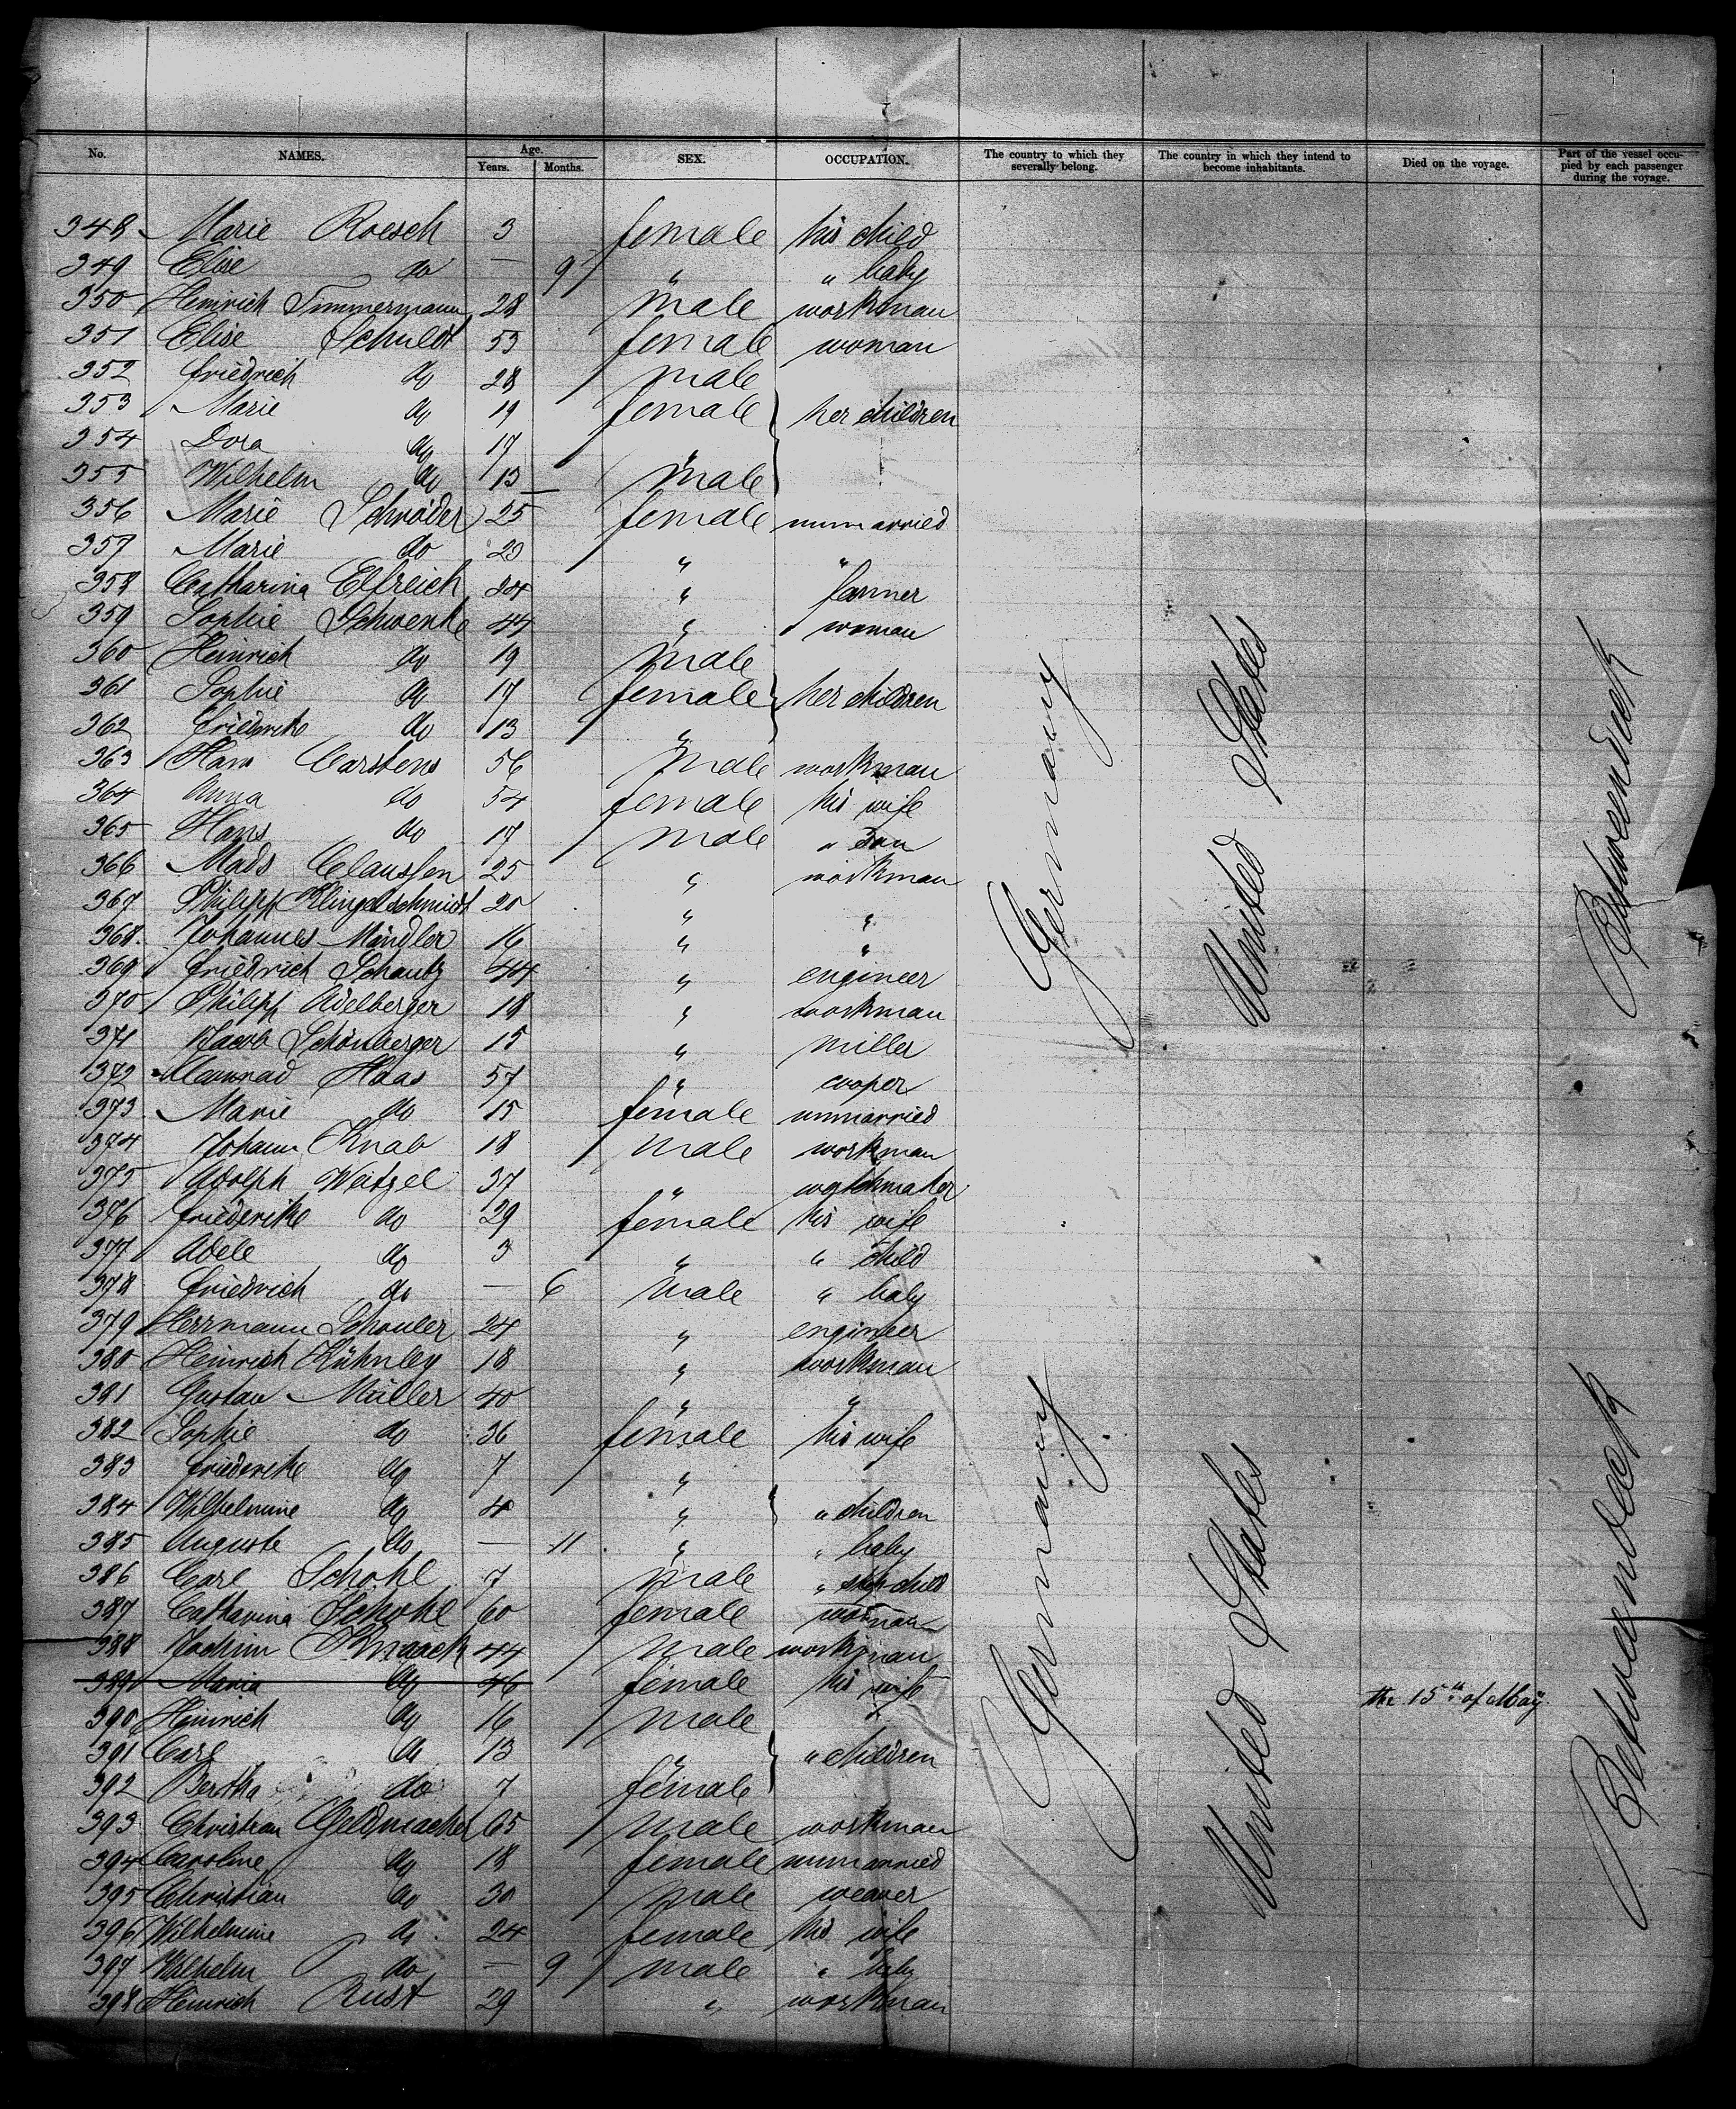 No. NAMES. Age. Years. Months. SEX. OCCUPATION. The country to which they severally belong. The country in which they intend to become inhabitants. Died on the voyage. Part of the vessel occupied by each passenger during the voyage.
348 Marie Roesch 3 female his child
349 Elise do — 9 " " baby
350 Heinrich Timmermann 28 male workman
351 Elise Schuldt 53 female woman
352 Friedrich do 28 male
353 Marie do 19 female her children
354 Dora do 17 "
355 Wilhelm do 13 male
356 Marie Schröder 25 female unmarried
357 Marie do 23 " "
358 Catharina Elfreich 24 " farmer
359 Sophie Schwenke 44 " woman
360 Heinrich do 19 male
361 Sophie do 17 female her children
362 Friederike do 13 "
363 Hans Carstens 56 male workman
364 Anna do 54 female his wife
365 Hans do 17 male " son
366 Mads Claussen 25 " workman
367 Philipp Klingelschmidt 20 " "
368 Johannes Mändler 16 " "
369 Friedrich Schantz 44 " engineer
370 Philipp Adelberger 18 " workman
371 Jacob Schönberger 15 " miller
372 Konrad Haas 57 " cooper
373 Marie do 15 female unmarried
374 Johann Knab 18 male workman
375 Adolph Weitzel 37 " watchmaker
376 Friederike do 29 female his wife
377 Adele do 3 " " child
378 Friedrich do — 6 male " baby
379 Herrmann Schouler 24 " engineer
380 Heinrich Kühnley 18 " workman
381 Gustav Müller 40 " "
382 Sophie do 36 female his wife
383 Friederike do 7 "
384 Wilhelmine do 4 " " children
385 Auguste do — 11 " " baby
386 Carl Schohl 7 male " step child
387 Catharina Schohl 60 female woman
388 Jochim Knaack 44 male workman
389 Maria do 46 female his wife the 15th of May
390 Heinrich do 16 male
391 Carl do 13 " " children
392 Bertha do 7 female
393 Christian Geldmacher 65 male workman
394 Caroline do 18 female unmarried
395 Christian do 30 male weaver
396 Wilhelmine do 24 female his wife
397 Wilhelm do — 9 male " baby
398 Heinrich Rust 29 " workman
Germany
United States
Betweendeck
Germany
United States
Betweendeck